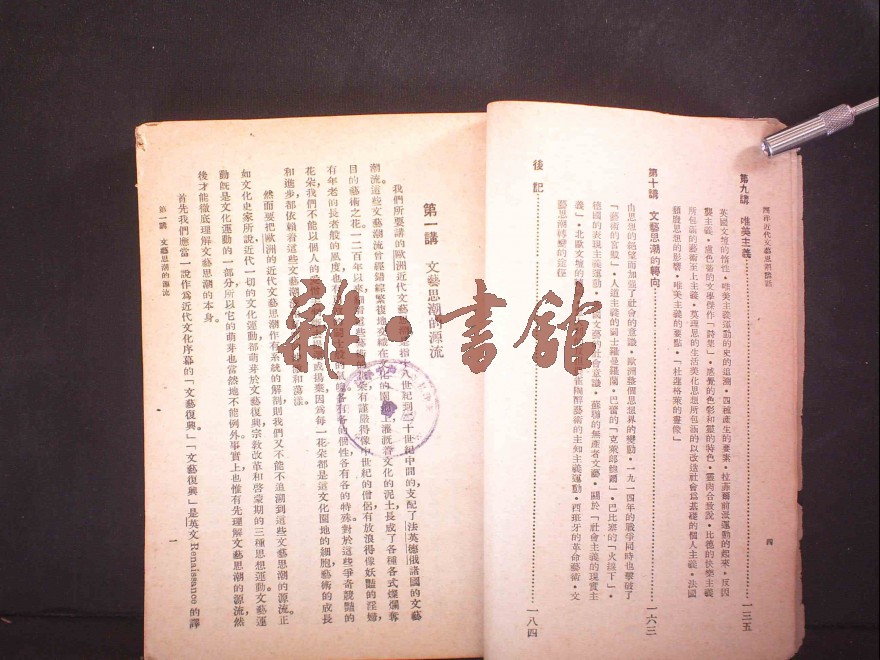 第九講 唯美主義 一三五
英國文壇的惰性・唯美主義運動的史的追溯・四種產生的要素・拉菲爾前派運動的起來・反因
襲主義・
感覺的色彩和
的特色・靈肉合致說・比德的快樂主義
所包涵的藝術至上主義・莫理思的生活美化思想所包涵的以改造社會為基礎的個人主義・法國
頹廢思想的影響・唯美主義的要點・「杜蓮格萊的畫像」
第十講 文藝思潮的轉向 一六三
由思想的絕望而加强了社會的意識・歐洲整個思想界的變動・一九一四年的戰爭同時也擊破了
「藝術的宮殿」・人道主義的鬥士羅曼羅蘭・巴蕾的「克萊郎鮑爾」・巴比塞的「火線下」・
德國的表現主義運動・
文藝的社會意識・蘇聯的無產者文藝・關於「社會主義的現實主
義」・北歐文壇的
醇藝術的主知主義運動・西班牙的革命藝術・文
藝思潮轉變的途徑
後記 一八四
四
第一講 文藝思潮的源流
我們所要講的歐洲近代文藝思潮
是指十八世紀到二十世紀中間的支配了法英德俄諸國的文藝
潮流這些文藝潮流曾經錯綜繁複地交織在文化的園地上灌漑着文化的泥土長成了各種各式燦爛奪
目的藝術之花一二百年以來
着這些藝術
朵有謹嚴得像中世紀的僧侶有放浪得像妖豔的淫婦
有年老的長者般的風度也有
各有各的個性各有各的特殊對於這些爭奇競豔的
花朵我們不能以個人的愛憎
或揚棄因為每一花朵都是這文化園地的細胞藝術的成長
和進步都依賴着這些文藝潮
和蕩漾。
然而要把歐洲的近代文藝思潮作有系統的解剖則我們又不能不追溯到這些文藝思潮的源流。正
如文化史家所說近代一切的文化運動都萌芽於文藝復興宗教改革和啓蒙期的三種思想運動。文藝運
動旣是文化運動的一部分所以它的萌芽也當然地不能例外。事實上也惟有先理解文藝思潮的源流然
後才能徹底理解文藝思潮的本身。
首先我們應當一說作為近代文化序幕的「文藝復興」「文藝復興」是英文 Renaissance 的譯
第一講 文藝思潮的源流
一
雜・書館